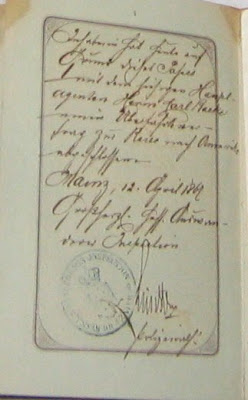 Inhaberin hat heute auf
Grund dieses Passes
mit dem hiesigen Haupt-
agenten Herrn Karl
einen Überfahrtsver-
trag zur Reise nach Amerika
abgeschlossen.
Mainz, 12. April 1861
Großherz. Hess. Auswan-
derer Inspection
Polizeirath